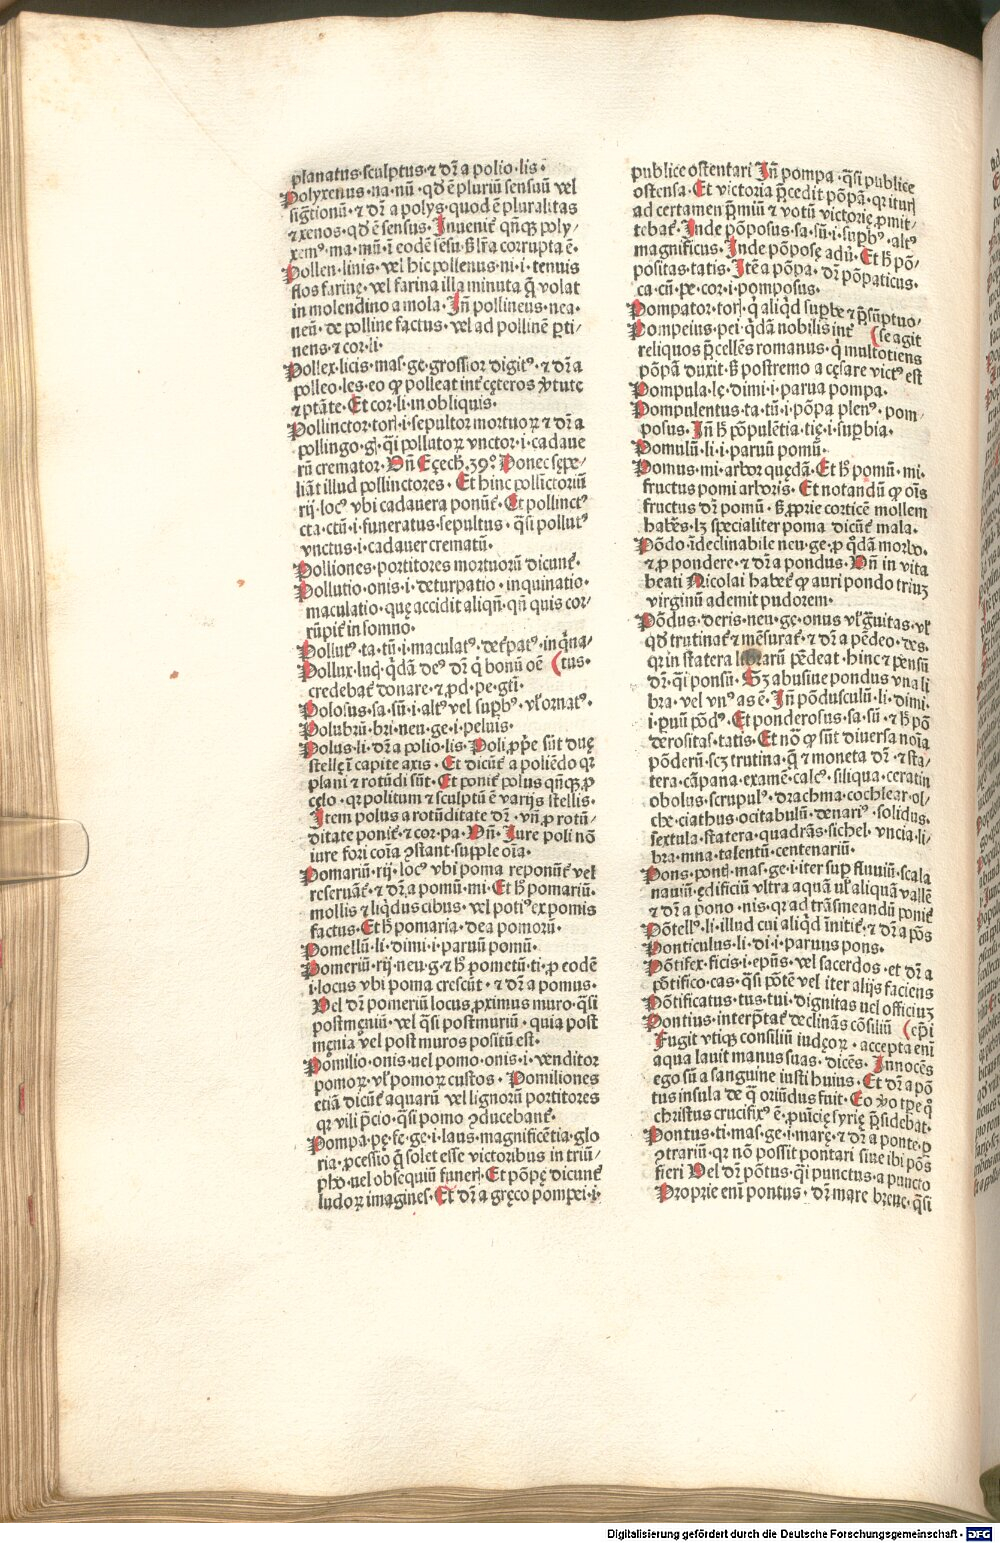 planatus·sculptus·⁊ dr̄ a polio·lis·
Polyxenus·na·nū·qd̄ ē pluriū sensuū vel
sigtionū·⁊ dr̄ a polys·quod ē pluralitas
⁊ xenos·qd̄ ē sensus· Inuenit̄ qn̄qꝫ poly⸗
xemꝰ·ma·mū·i eodē sēsu·ꝫ lr̄a corrupta ē·
Pollen·linis·vel hic pollenus·ni·i·tenuis
flos farine·vel farina illa minuta q̄ volat
in molendino a mola· In̄ pollineus·nea·
neū·de polline factus·vel ad pollinē ꝑti⸗
nens·⁊ cor·li·
Pollex·licis·mas·ge·grossior digitꝰ·⁊ dr̄ a
polleo·les·eo ꝙ polleat int̄ cęteros ỽtute
⁊ ptāte· Et cor·li·in obliquis·
Pollinctor·torꝭ·i·sepultor mortuoꝝ·⁊ dr̄ a
pollingo·gꝭ·q̄i pollutoꝝ vnctor·i·cadaue
rū cremator· Vn̄ Eçech·39°· Donec sępe⸗
liāt illud pollinctores· Et hinc pollīctoriū
rij·locꝰ vbi cadauera ponūt̄· Et pollinctꝰ
cta·ctū·i·funeratus·sepultus·q̄si pollutꝰ
vnctus·i·cadauer crematū·
Polliones·portitores mortuorū dicunt̄·
Pollutio·onis·i·deturpatio·inquinatio·
maculatio·quę accidit aliqn̄·qn̄ quis cor⸗
rūpit̄ in somno·
Pollutꝰ·ta·tū·i·maculatꝰ·det̄patꝰ·inq̄na·
Pollux·lucꝭ·q̄dā deꝰ dr̄ q̄ bonū oē (tus·
credebat̄ donare·⁊ ꝓd·pe·gti·
Polosus·sa·sū·i·altꝰ vel supbꝰ·vl̕ ornatꝰ·
Polubrū·bri·neu·ge·i·peluis·
Polus·li·dr̄ a polio·lis· Poli ꝓp̄e sūt duę
stellę ī capite axis· Et dicūt̄ a poliēdo qꝛ
plani ⁊ rotūdi sūt· Et ponit̄ polus qn̄qꝫ ꝓ
cęlo·qꝛ politum ⁊ sculptū ē varijs stellis·
Item polus a rotūditate dr̄·vn̄ ꝓ rotū⸗
ditate ponit̄·⁊ cor·pa· Vn̄· Iure poli nō
iure fori cōia ꝯstant·supple oīa·
Pomariū·rij·locꝰ vbi poma reponūt̄ vel
reseruāt̄·⁊ dr̄ a pomū·mi· Et h̄ pomariū·
mollis ⁊ liqdus cibus·vel potiꝰ ex pomis
factus· Et h̄ pomaria·dea pomorū·
Pomellū·li·dimi·i·paruū pomū·
Pomeriū·rij·neu·g·⁊ h̄ pometū·ti·ꝓ eodē
i·locus vbi poma crescūt·⁊ dr̄ a pomus·
Vel dr̄ pomeriū locus ꝓximus muro·q̄si
postmęniū·vel q̄si postmuriū·quia post
męnia vel post muros positū est·
Pomilio·onis·uel pomo·onis·i·venditor
pomoꝝ·vl̕ pomoꝝ custos· Pomiliones
etiā dicūt̄ aquarū vel lignorū portitores
qꝛ vili p̄cio·q̄si pomo ꝯducebant̄·
Pompa·pę·fe·ge·i·laus·magnificētia·glo
ria·ꝓcessio q̄ solet esse victoribus in triū⸗
pho·uel obsequiū funerꝭ· Et pōpę dicunt̄
ludoꝝ imagines· Et dr̄ a gręco pompei·i·
publice ostentari In̄ pompa·q̄si publice
ostensa· Et victoria p̄cedit pōpā·qꝛ iturꝭ
ad certamen p̄miū ⁊ votū victorię ꝓmit⸗
tebāt̄· Inde pōposus·sa·sū·i·supbꝰ·altꝰ
magnificus· Inde pōpose adu̕· Et h̄ pō⸗
positas·tatis· Itē a pōpa·dr̄ pōpaticus·
ca·cū·pe·cor·i·pomposus·
Pompator·torꝭ·q̄ aliqd supbe ⁊ p̄sūptuo⸗
Pompeius·pei·q̄dā nobilis int̄ (se agit
reliquos p̄cellēs romanus·q̄ multotiens
pōpā duxit·ꝫ postremo a cęsare victꝰ est
Pompula·lę·dimi·i·parua pompa·
Pompulentus·ta·tū·i·pōpa plenꝰ·pom⸗
posus· In̄ h̄ pōpulētia·tię·i·supbia·
Pomulū·li·i·paruū pomū·
Pomus·mi·arbor quędā· Et h̄ pomū·mi·
fructus pomi arboris· Et notandū ꝙ oīs
fructus dr̄ pomū·ꝫ ꝓprie corticē mollem
habēs·lꝫ specialiter poma dicūt̄ mala·
Pōdo·īdeclinabile neu·ge·ꝓ q̄dā morbo·
⁊ ꝓ pondere·⁊ dr̄ a pondus· Vn̄ in vita
beati Nicolai habet̄ ꝙ auri pondo triuꝫ
virginū ademit pudorem·
Pōdus·deris·neu·ge·onus vl̕ ḡuitas·vl̕
qd̄ trutinat̄ ⁊ mēsurat̄·⁊ dr̄ a pēdeo·des·
qꝛ in statera librarū pēdeat·hinc ⁊ pēnsū
dr̄·q̄i ponsū· Sꝫ abusiue pondus vna li
bra·vel vnꝰ as ē· In̄ pōdusculū·li·dimi·
i·puū pōdꝰ· Et ponderosus·sa·sū·⁊ h̄ pō
derositas·tatis· Et nō ꝙ sūt diuersa noīa
pōderū·scꝫ trutina·q̄ ⁊ moneta dr̄·⁊ sta⸗
tera·cāpana·examē·calcꝰ·siliqua·ceratin
obolus·scrupulꝰ·drachma·cochlear·ol⸗
che·ciathus·ocitabulū·denariꝰ·solidus·
sextula·statera·quadrās·sichel·vncia·li⸗
bra·mna·talentū·centenariū·
Pons·pontꝭ·mas·ge·i·iter sup̄ fluuiū·scala
nauiū·ędificiū vltra aquā vl̕ aliquā vallē
⁊ dr̄ a pono·nis·qꝛ ad trāsmeandū ponit̄
Pōtellꝰ·li·illud cui aliqd īnitit̄·⁊ dr̄ a pōs
Ponticulus·li·di·i·paruus pons·
Pōtifex·ficis·i·ep̄us·vel sacerdos·et dr̄ a
pōtifico·cas·q̄si pōtē vel iter alijs faciens
Pōtificatus·tus·tui·dignitas uel officiuꝫ
Pontius·interp̄tat̄ declinās cōsiliū (ep̄i
Fugit vtiqꝫ consiliū iudęoꝝ·accepta enī
aqua lauit manus suas·dicēs· Innocēs
ego sū a sanguine iusti huius· Et dr̄ a pō
tus insula de q̄ oriūdus fuit· Eo ỽo tꝑe q̄
christus crucifixꝰ ē·ꝓuīcię syrię p̄sidebat·
Pontus·ti·mas·ge·i·marę·⁊ dr̄ a ponte·ꝑ
ꝯtrariū·qꝛ nō possit pontari siue ibi pōs
fieri Vel dr̄ pōtus·q̄i punctus·a puncto
Proprie enī pontus·dr̄ mare breue·q̄si
Digitalisierung gefördert durch die Deutsche Forschungsgemeinschaft - DFG